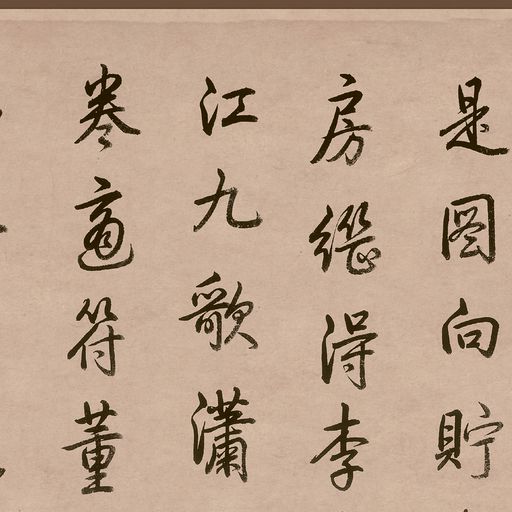 是图向貯
房繼得李
江九歌瀟
卷適符董